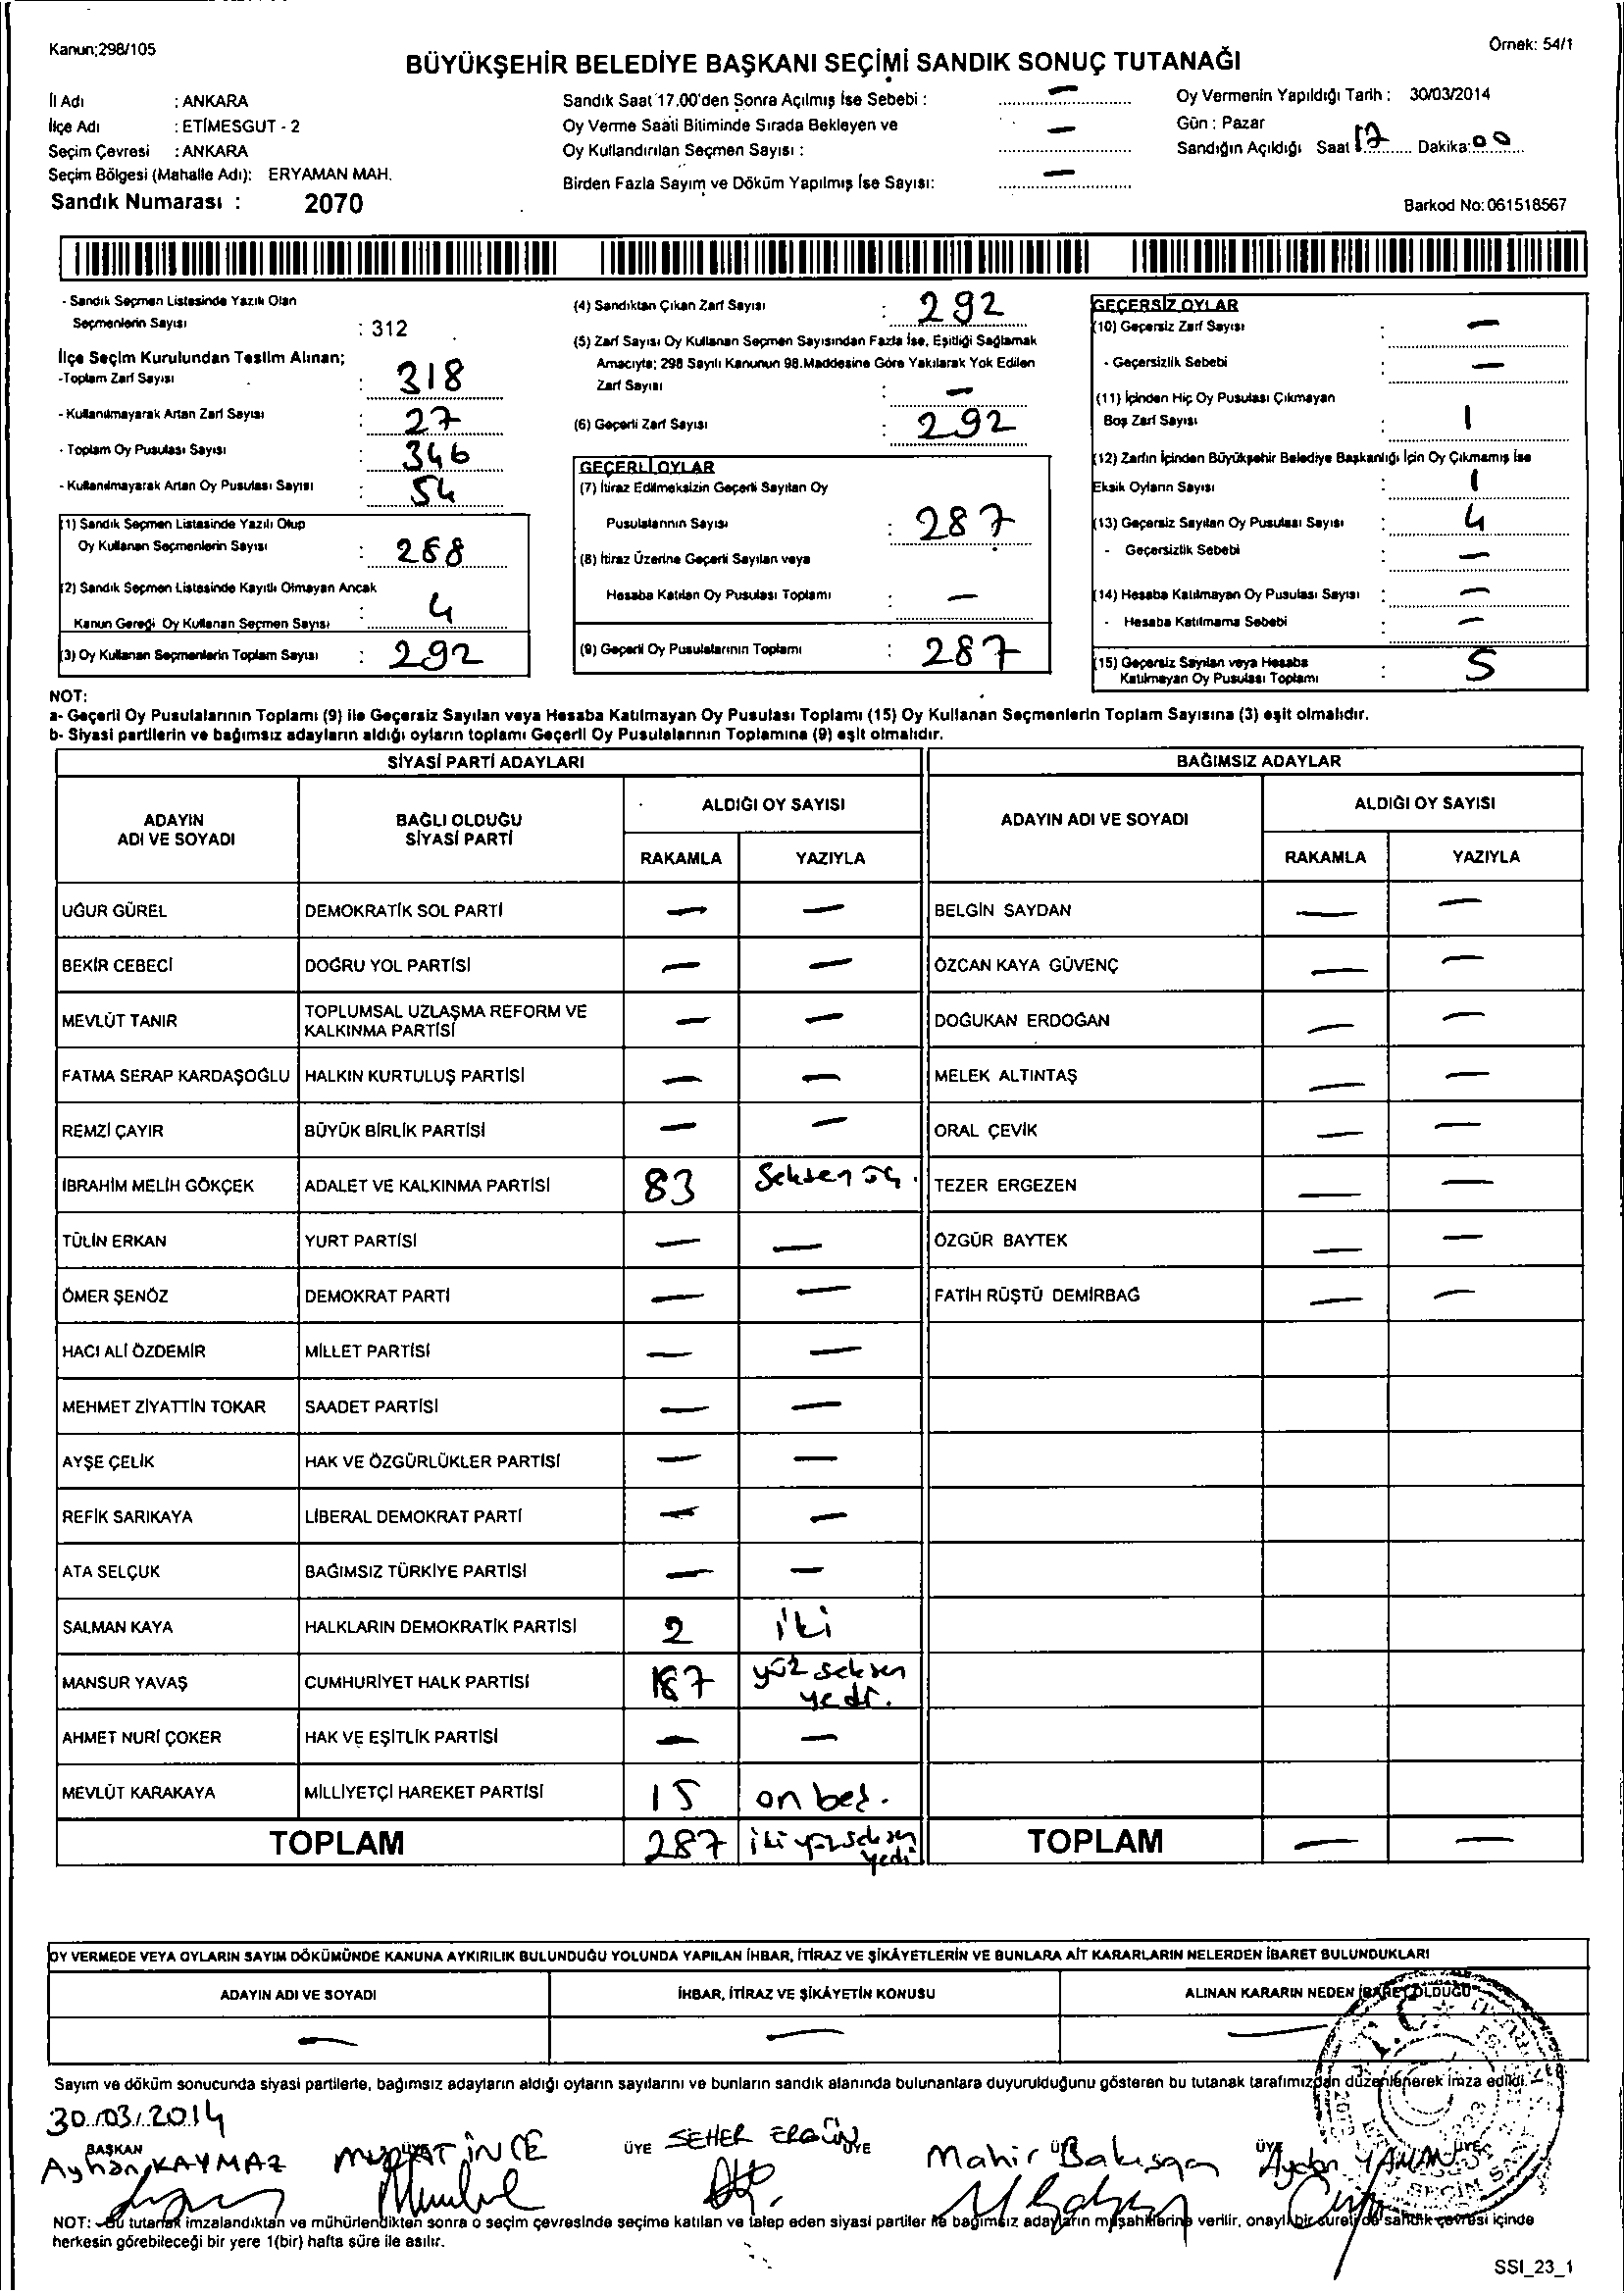 Kanun;298/105
Örnek: 54/1
BÜYÜKŞEHİR BELEDİYE BAŞKANI SEÇİMİ SANDIK SONUÇ TUTANAĞI
İl Adı : ANKARA
İlçe Adı : ETİMESGUT - 2
Seçim Çevresi : ANKARA
Seçim Bölgesi (Mahalle Adı): ERYAMAN MAH.
Sandık Numarası : 2070
Sandık Saat 17.00'den Sonra Açılmış İse Sebebi : —
Oy Verme Saati Bitiminde Sırada Bekleyen ve
Oy Kullandırılan Seçmen Sayısı : —
Birden Fazla Sayım ve Döküm Yapılmış İse Sayısı: —
Oy Vermenin Yapıldığı Tarih : 30/03/2014
Gün : Pazar
Sandığın Açıldığı Saat 17 Dakika: 00
Barkod No: 061518567
- Sandık Seçmen Listesinde Yazılı Olan
Seçmenlerin Sayısı : 312
İlçe Seçim Kurulundan Teslim Alınan;
-Toplam Zarf Sayısı : 318
- Kullanılmayarak Artan Zarf Sayısı : 27
- Toplam Oy Pusulası Sayısı : 346
- Kullanılmayarak Artan Oy Pusulası Sayısı : 54
(1) Sandık Seçmen Listesinde Yazılı Olup
Oy Kullanan Seçmenlerin Sayısı : 288
(2) Sandık Seçmen Listesinde Kayıtlı Olmayan Ancak
Kanun Gereği Oy Kullanan Seçmen Sayısı : 4
(3) Oy Kullanan Seçmenlerin Toplam Sayısı : 292
(4) Sandıktan Çıkan Zarf Sayısı : 292
(5) Zarf Sayısı Oy Kullanan Seçmen Sayısından Fazla İse, Eşitliği Sağlamak
Amacıyla; 298 Sayılı Kanunun 98.Maddesine Göre Yakılarak Yok Edilen
Zarf Sayısı : —
(6) Geçerli Zarf Sayısı : 292
GEÇERLİ OYLAR
(7) İtiraz Edilmeksizin Geçerli Sayılan Oy
Pusulalarının Sayısı : 287
(8) İtiraz Üzerine Geçerli Sayılan veya
Hesaba Katılan Oy Pusulası Toplamı : —
(9) Geçerli Oy Pusulalarının Toplamı : 287
GEÇERSİZ OYLAR
(10) Geçersiz Zarf Sayısı : —
- Geçersizlik Sebebi : —
(11) İçinden Hiç Oy Pusulası Çıkmayan
Boş Zarf Sayısı : 1
(12) Zarfın İçinden Büyükşehir Belediye Başkanlığı İçin Oy Çıkmamış İse
Eksik Oyların Sayısı : 1
(13) Geçersiz Sayılan Oy Pusulası Sayısı : 4
- Geçersizlik Sebebi : —
(14) Hesaba Katılmayan Oy Pusulası Sayısı : —
- Hesaba Katılmama Sebebi : —
(15) Geçersiz Sayılan veya Hesaba
Katılmayan Oy Pusulası Toplamı : 5
NOT:
a- Geçerli Oy Pusulalarının Toplamı (9) ile Geçersiz Sayılan veya Hesaba Katılmayan Oy Pusulası Toplamı (15) Oy Kullanan Seçmenlerin Toplam Sayısına (3) eşit olmalıdır.
b- Siyasi partilerin ve bağımsız adayların aldığı oyların toplamı Geçerli Oy Pusulalarının Toplamına (9) eşit olmalıdır.
SİYASİ PARTİ ADAYLARI
ADAYIN ADI VE SOYADI BAĞLI OLDUĞU SİYASİ PARTİ ALDIĞI OY SAYISI
RAKAMLA YAZIYLA
UĞUR GÜREL DEMOKRATİK SOL PARTİ — —
BEKİR CEBECİ DOĞRU YOL PARTİSİ — —
MEVLÜT TANIR TOPLUMSAL UZLAŞMA REFORM VE KALKINMA PARTİSİ — —
FATMA SERAP KARDAŞOĞLU HALKIN KURTULUŞ PARTİSİ — —
REMZİ ÇAYIR BÜYÜK BİRLİK PARTİSİ — —
İBRAHİM MELİH GÖKÇEK ADALET VE KALKINMA PARTİSİ 83 Seksen üç.
TÜLİN ERKAN YURT PARTİSİ — —
ÖMER ŞENÖZ DEMOKRAT PARTİ — —
HACI ALİ ÖZDEMİR MİLLET PARTİSİ — —
MEHMET ZİYATTİN TOKAR SAADET PARTİSİ — —
AYŞE ÇELİK HAK VE ÖZGÜRLÜKLER PARTİSİ — —
REFİK SARIKAYA LİBERAL DEMOKRAT PARTİ — —
ATA SELÇUK BAĞIMSIZ TÜRKİYE PARTİSİ — —
SALMAN KAYA HALKLARIN DEMOKRATİK PARTİSİ 2 iki
MANSUR YAVAŞ CUMHURİYET HALK PARTİSİ 187 yüz seksen yedi.
AHMET NURİ ÇOKER HAK VE EŞİTLİK PARTİSİ — —
MEVLÜT KARAKAYA MİLLİYETÇİ HAREKET PARTİSİ 15 on beş.
TOPLAM 287 iki yüz seksen yedi
BAĞIMSIZ ADAYLAR
ADAYIN ADI VE SOYADI ALDIĞI OY SAYISI
RAKAMLA YAZIYLA
BELGİN SAYDAN — —
ÖZCAN KAYA GÜVENÇ — —
DOĞUKAN ERDOĞAN — —
MELEK ALTINTAŞ — —
ORAL ÇEVİK — —
TEZER ERGEZEN — —
ÖZGÜR BAYTEK — —
FATİH RÜŞTÜ DEMİRBAĞ — —
TOPLAM — —
OY VERMEDE VEYA OYLARIN SAYIM DÖKÜMÜNDE KANUNA AYKIRILIK BULUNDUĞU YOLUNDA YAPILAN İHBAR, İTİRAZ VE ŞİKÂYETLERİN VE BUNLARA AİT KARARLARIN NELERDEN İBARET BULUNDUKLARI
ADAYIN ADI VE SOYADI İHBAR, İTİRAZ VE ŞİKÂYETİN KONUSU ALINAN KARARIN NEDEN İBARET OLDUĞU
— — —
T.C.
Sayım ve döküm sonucunda siyasi partilerle, bağımsız adayların aldığı oyların sayılarını ve bunların sandık alanında bulunanlara duyurulduğunu gösteren bu tutanak tarafımızdan düzenlenerek imza edildi.
30/03/2014
BAŞKAN ÜYE ÜYE ÜYE ÜYE ÜYE
Ayhan KAYMAZ MURAT İNCE SEHER ERGÜN Mahir Bakışgan Aydın YAMAN
NOT: - Bu tutanak imzalandıktan ve mühürlendikten sonra o seçim çevresinde seçime katılan ve talep eden siyasi partiler ile bağımsız adayların müşahitlerine verilir, onaylı bir sureti de sandık çevresi içinde
herkesin görebileceği bir yere 1(bir) hafta süre ile asılır.
SSI_23_1